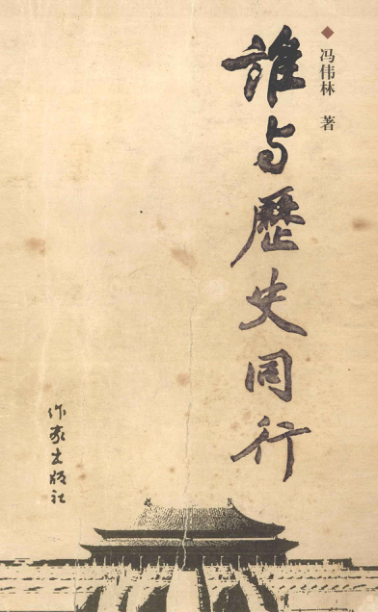 冯伟林 著
誰与歷史同行
作家出版社